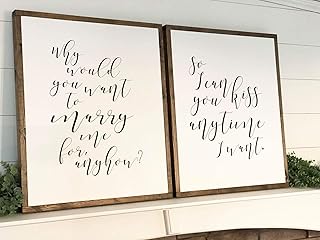 Why
would
you want
to
marry
me
for,
anyhow?
So
I can
you kiss
anytime
I want.